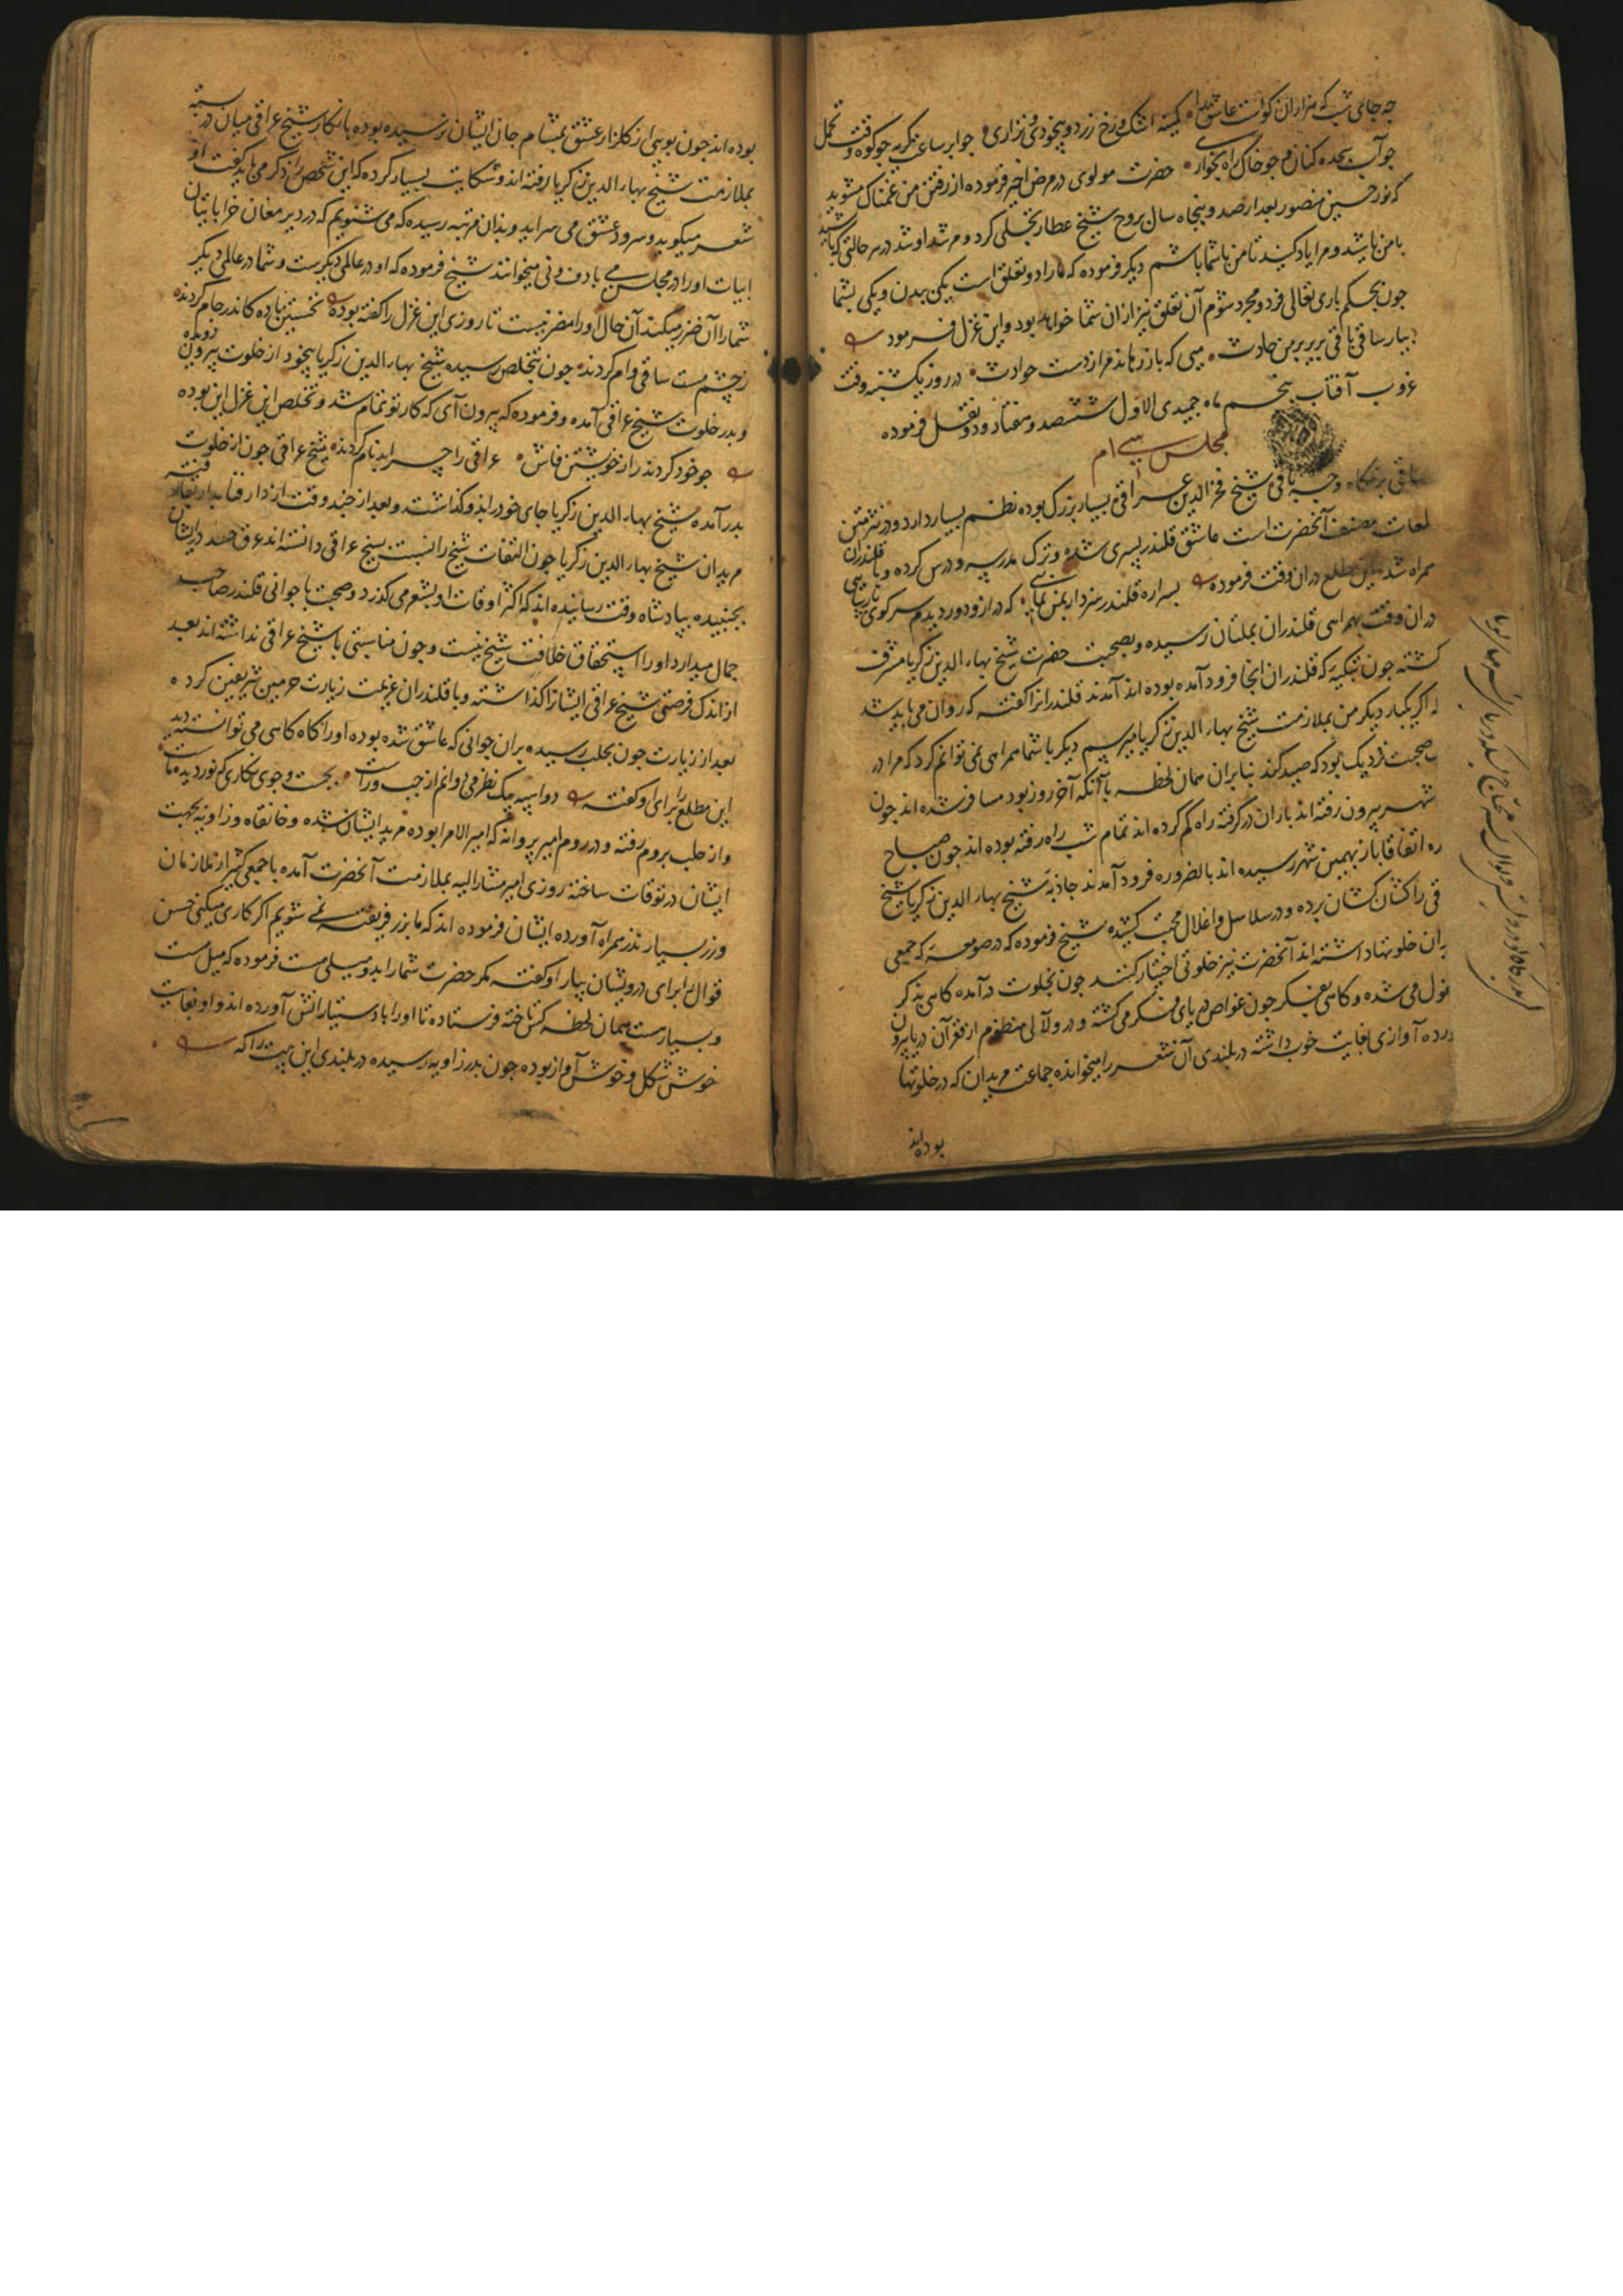 چه جای شب که هزاران کواست عاشق شیدا کمینه اشک و رخ زرد و بیخودی و نزاری جوابر ساعت کریه جو کوه وقت تحمل
جو آب سجده کنان و جو خاک راه بخواری حضرت مولوی در مرض اخیر فرموده از رفتن من غمناک مشوید
که نور حسین منصور بعد از صد و پنجاه سال بروح شیخ عطار تجلی کرد و مرشد او شد در هر حالتی که باشید
با من باشید و مرا یاد کنید تا من باشما باشم دیکر فرموده که مارا دو تعلق است یکی ببدن و یکی بشما
جون بحکم باری تعالی فرد و مجرد شوم آن تعلق نیز از ان شما خواهد بود و این غزل فرمود
بیار ساقی باقی حادث میی که باز رهاند مرا ز دست حوادث در روز یکشنبه وقت
غروب آفتاب پنجم ماه جمیدی الاول ششصد و هفتاد و دو نقل فرموده
مجلس سی ام
ساقی بزمکاه وجه باقی شیخ فخر الدین عراقی بسیار بزرک بوده نظم بسیار دارد و در نثر متن
لمعات مصنف آنحضرت است عاشق قلندر پسری شده و ترک مدرسه و درس کرده و با قلندران
همراه شده این مطلع دران وقت فرموده پسرا ره قلندر سزد ار بمن نمایی که دراز و دور دیدم سر کوی پارسایی
دران وقت بهمراهی قلندران بملتان رسیده و بصحبت حضرت شیخ بهاء الدین زکریا مشرف
کشته جون بتکیه که قلندران انجا فرود آمده بوده اند آمدند قلندرانرا کفته که روان می باید شد
که اکر یکبار دیکر من بملازمت شیخ بهاء الدین زکریا میرسم دیکر با شما همراهی نمی توانم کرد که مرا در
صحبت نزدیک بود که صید کند بنابران همان لحظه با آنکه آخر روز بود مسافر شده اند جون
شهر بیرون رفته اند باران در کرفته راه کم کرده اند تمام شب راه رفته بوده اند جون صباح
ده اتفاقا باز بهمین شهر رسیده اند بالضروره فرود آمدند جاذبه شیخ بهاء الدین زکریا شیخ
قی را کشان کشان برده و در سلاسل و اغلال محبت کشیده شیخ فرموده که در صومعه که جمعی
یدان خلوتها داشته اند آنحضرت نیز خلوتی اختیار کنند جون بخلوت درآمده کاهی بذکر
غول می شده و کاهی بفکر جون غواص دریای فکر می کشته و در و لآلی منظوم از قعر آن دریا بیرون
ورده آوازی بغایت خوب داشته در بلندی آن شعر را میخوانده جماعت مریدان که در خلوتها
بوده اند
بوده اند جون بویی از کلزار عشق بمشام جان ایشان نرسیده بوده بانکار شیخ عراقی میان در بسته
بملازمت شیخ بهاء الدین زکریا رفته اند و شکایت بسیار کرده که این شخص را ذکر می باید کفت او
شعر میکوید و سرود عشق می سراید و بدان مرتبه رسیده که می شنویم که در دیر مغان خراباتیان
ابیات او را در مجلس می با دف و نی میخوانند شیخ فرموده که او در عالمی دیکرست و شما در عالمی دیکر
شما را آن ضرر میکند آن حال او را مضر نیست تا روزی این غزل را کفته بوده نخستین باده کاندر جام کردند
ز چشم مست ساقی وام کردند جون بتخلص رسیده شیخ بهاء الدین زکریا بیخود از خلوت بیرون دویده
و بدر خلوت شیخ عراقی آمده و فرموده که بیرون آی که کار تو تمام شد و تخلص این غزل این بوده
جو خود کردند راز خویشتن فاش عراقی را چرا بدنام کردند شیخ عراقی جون از خلوت
بدر آمده شیخ بهاء الدین زکریا جای خود را بدو کذاشته و بعد از چند وقت از دار فنا بدار بقا رفته
مریدان شیخ بهاء الدین زکریا جون التفات شیخ را نسبت بشیخ عراقی دانسته اند عرق حسد در ایشان
بجنبیده بپادشاه وقت رسانیده اند که اکثر اوقات او بشعر می کذرد و صحبت با جوانی قلندر صاحب
جمال میدارد او را استحقاق خلافت شیخ نیست و جون مناسبتی با شیخ عراقی نداشته اند بعد
از اندک فرصتی شیخ عراقی ایشانرا کذاشته و با قلندران عزیمت زیارت حرمین شریفین کرده
بعد از زیارت جون بحلب رسیده بران جوانی که عاشق شده بوده او را کاه کاهی می توانسته دید
این مطلع را برای او کفته دو اسپه پیک نظر می دوانم از چپ و راست بجست و جوی نکاری که نور دیده ماست
و از حلب بروم رفته و در روم امیر پروانه که امیر الامرا بوده مرید ایشان شده و خانقاه و زاویه بجهت
ایشان در توقات ساخته روزی امیر مشار الیه بملازمت آنحضرت آمده با جمعی کثیر از ملازمان
و زر بسیار نذر همراه آورده ایشان فرموده اند که ما بزر فریفته نمی شویم اکر کاری میکنی حسن
قوال برای درویشان بیار او کفته مکر حضرت شما را بدو میلی هست فرموده که میل هست
و بسیار هست همان لحظه کس تاخته فرستاده تا او را با دستیارانش آورده اند و او بغایت
خوش شکل و خوش آواز بوده جون بدر زاویه رسیده در بلندی این بیت را که